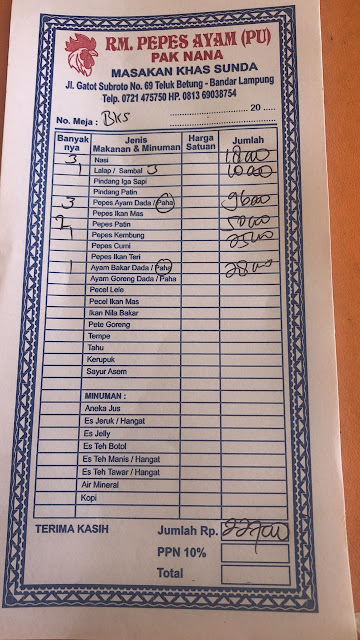 RM. PEPES AYAM (PU)
PAK NANA
MASAKAN KHAS SUNDA
Jl. Gatot Subroto No. 69 Teluk Betung - Bandar Lampung
Telp. 0721 475750 HP. 0813 69038754
20 .....
No. Meja : BKS
Banyaknya Jenis Makanan & Minuman Harga Satuan Jumlah
3 Nasi 18000
1 Lalap / Sambal 10000
Pindang Iga Sapi
Pindang Patin
3 Pepes Ayam Dada / Paha 96000
Pepes Ikan Mas
2 Pepes Patin 50000
1 Pepes Kembung 25000
Pepes Cumi
Pepes Ikan Teri
1 Ayam Bakar Dada / Paha 28000
Ayam Goreng Dada / Paha
Pecel Lele
Pecel Ikan Mas
Ikan Nila Bakar
Pete Goreng
Tempe
Tahu
Kerupuk
Sayur Asem
MINUMAN :
Aneka Jus
Es Jeruk / Hangat
Es Jelly
Es Teh Botol
Es Teh Manis / Hangat
Es Teh Tawar / Hangat
Air Mineral
Kopi
TERIMA KASIH Jumlah Rp. 227000
PPN 10%
Total